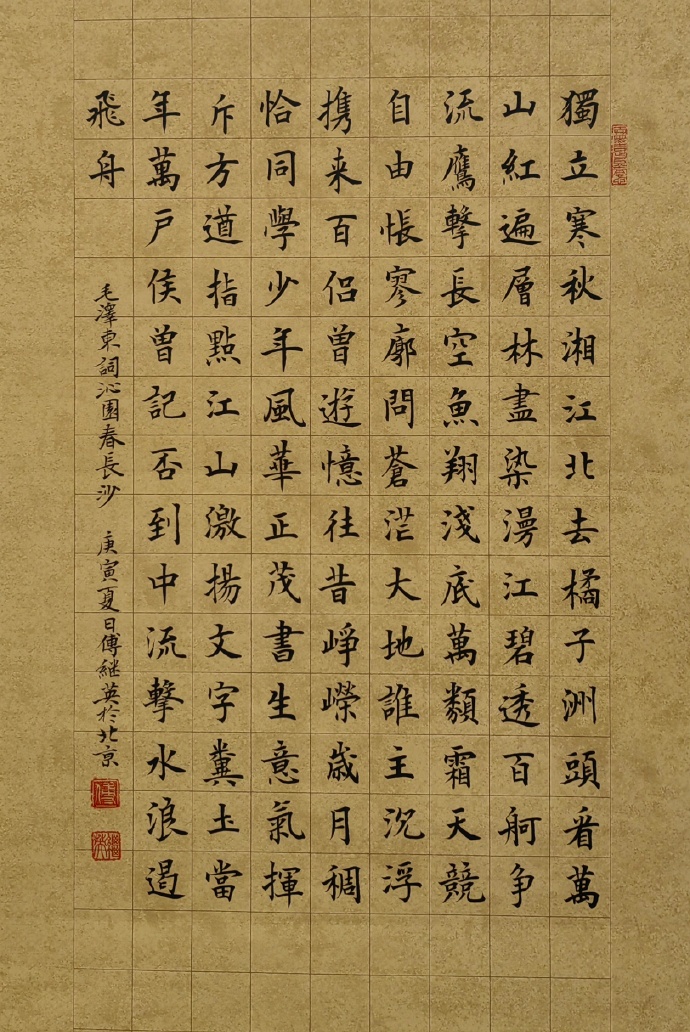 獨立寒秋湘江北去橘子洲頭看萬
山紅遍層林盡染漫江碧透百舸争
流鷹擊長空魚翔淺底萬類霜天競
自由悵寥廓問蒼茫大地誰主沉浮
携来百侣曾遊憶往昔崢嶸歳月稠
恰同學少年風華正茂書生意氣揮
斥方遒指點江山激揚文字糞土當
年萬戶侯曾記否到中流擊水浪遏
飛舟
毛澤東詞沁園春長沙 庚寅夏日傅継英於北京